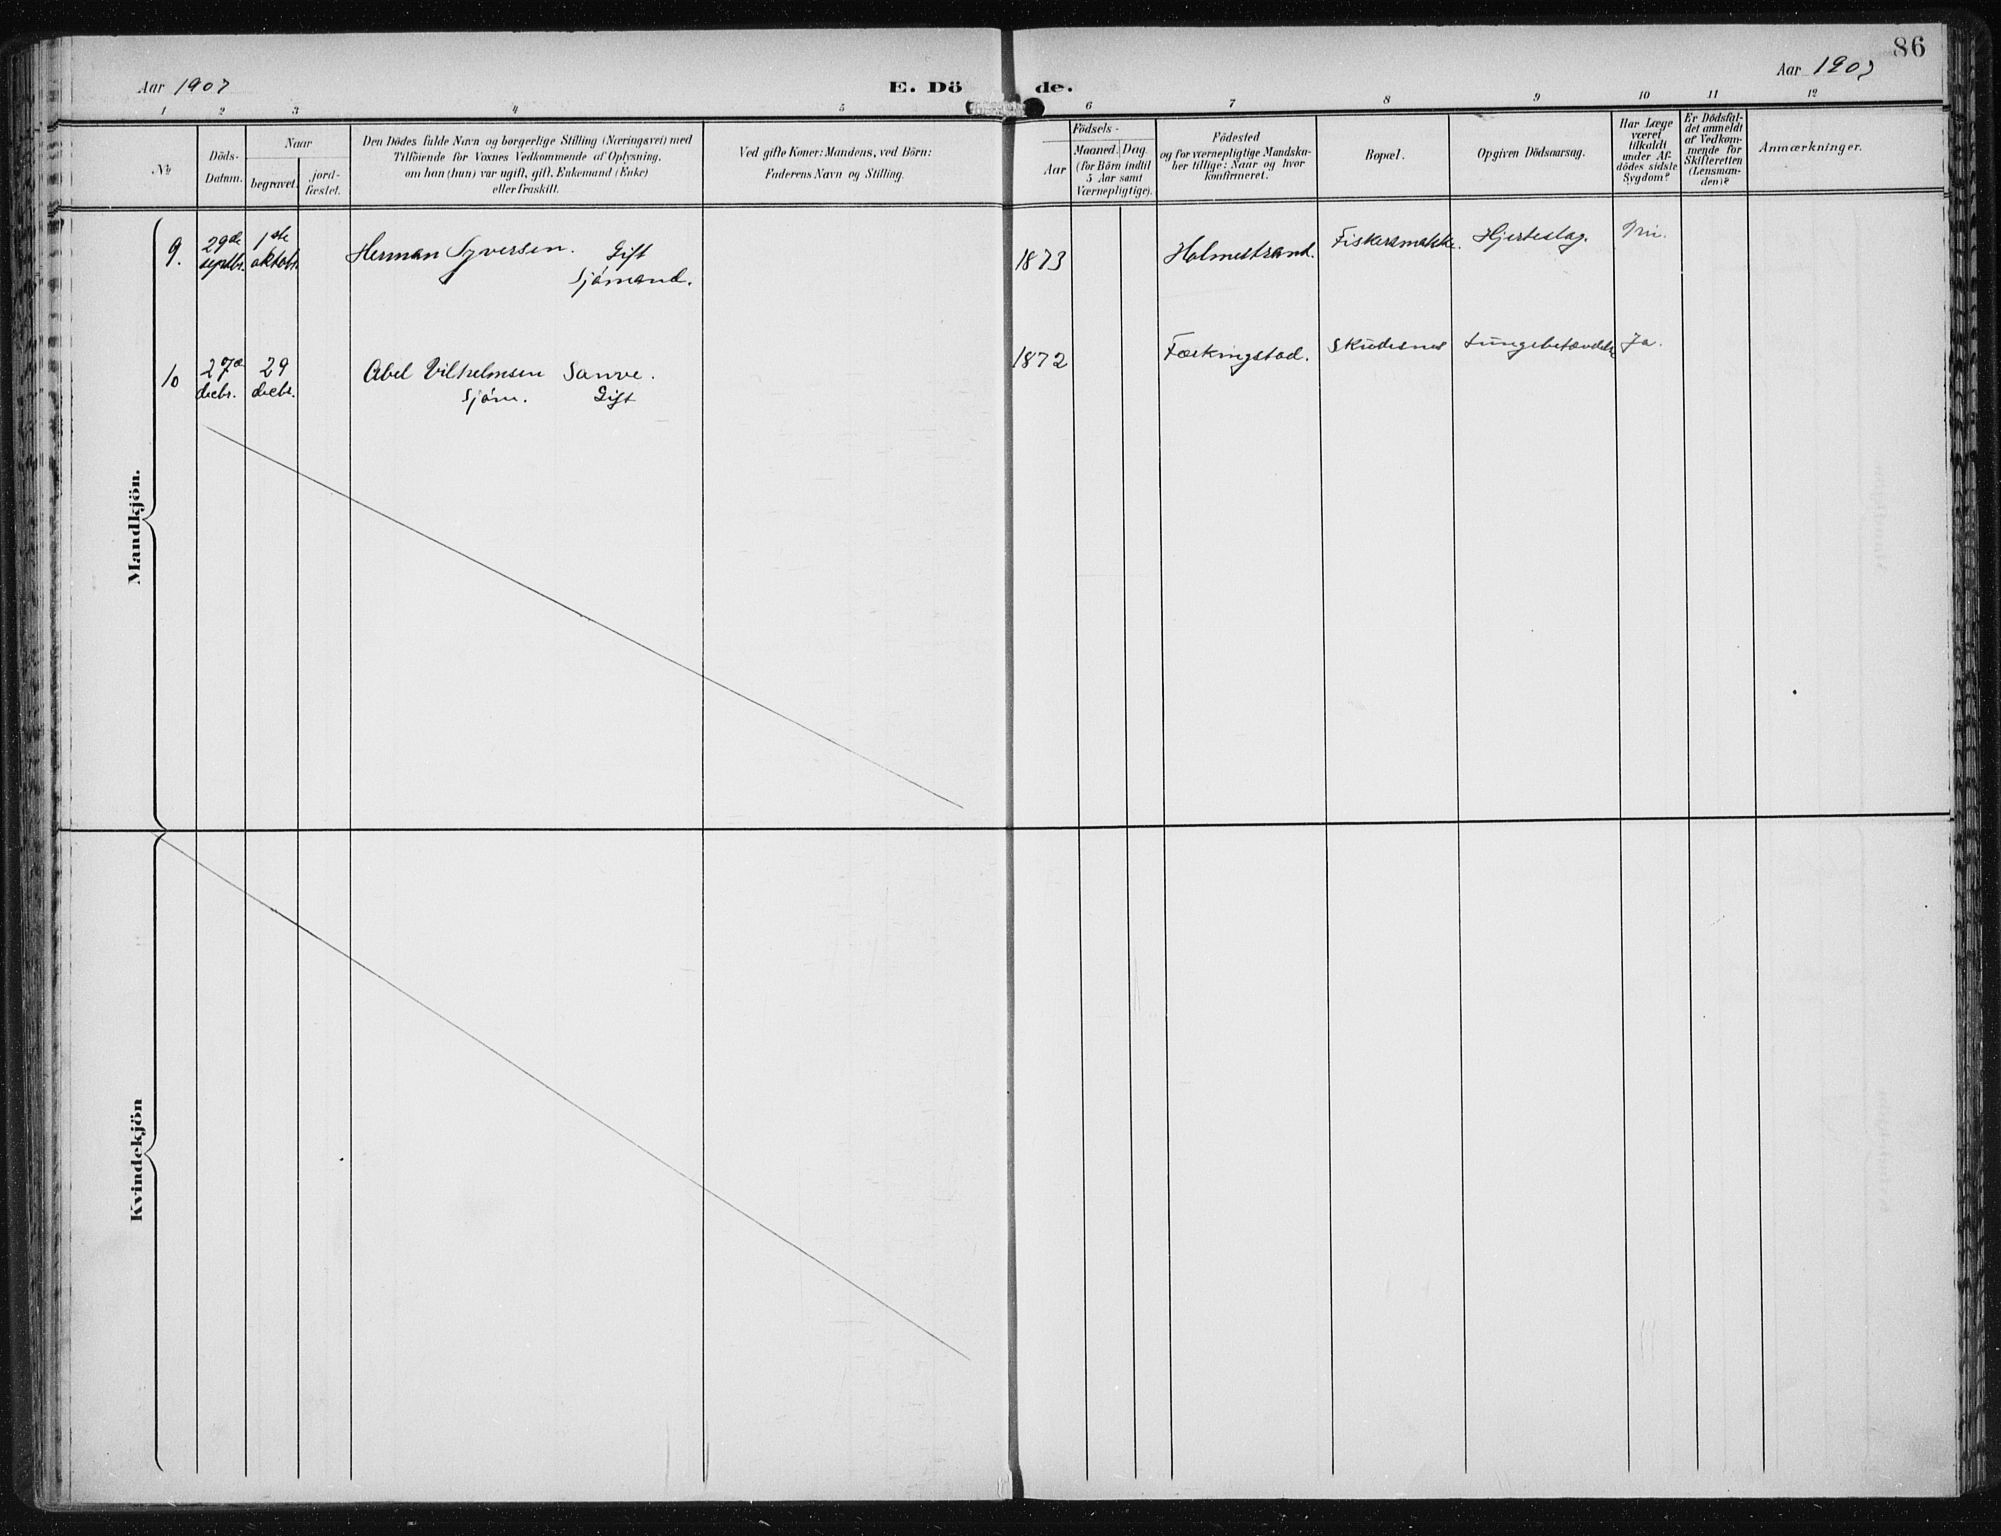 86
Aar 1907
E. Dö
de.
Aar 1907
1 2 3 4 5 6 7 8 9 10 11 12
№
Döds-
Datum.
Naar
begravet.
jord-
fæstet.
Den Dödes fulde Navn og borgerlige Stilling (Næringsvei) med
Tilföiende for Voxnes Vedkommende af Oplysning,
om han (hun) var ugift, gift, Enkemand (Enke)
eller fraskilt.
Ved gifte Koner: Mandens, ved Börn:
Faderens Navn og Stilling.
Födsels-
Aar
Maaned. Dag.
(for Börn indtil
5 Aar samt
Værnepligtige).
Födested
og for værnepligtige Mandska-
ber tillige: Naar og hvor
konfirmeret.
Bopæl.
Opgiven Dödsaarsag.
Har Læge
været
tilkaldt
under Af-
dödes sidste
Sygdom?
Er Dödsfal-
det anmeldt
af Vedkom-
mende for
Skifteretten
(Lensman-
den)?
Anmærkninger.
Mandkjön.
9. 29de 1ste Herman Syversen. Gift 1873 Holmestrand. Fiskersmakke. Hjerteslag.
septbr. oktobr. Sjömand.
10 27de 29 Abel Vilhelmsen Sanve. 1872 Færkingstad. Skudesnes Lungebetændelse Ja.
decbr. decbr. Sjöm. Gift
Kvindekjön